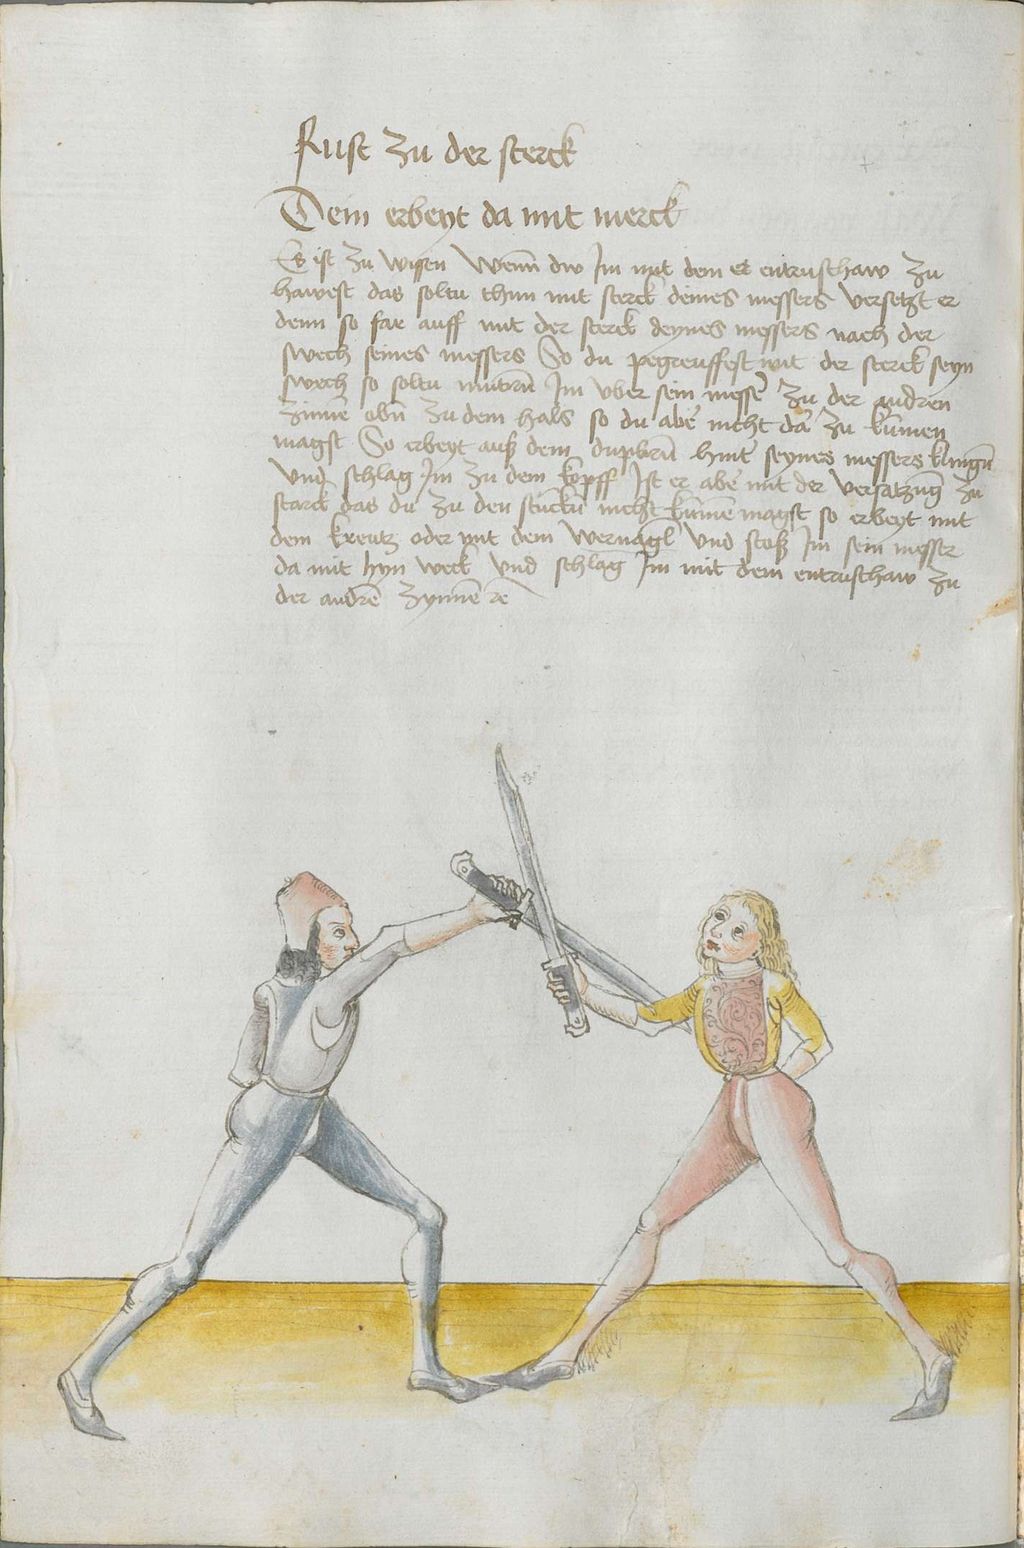 Rust zu der sterck
Dein erbeyt da mit merck
Es ist zu wissen Wenn dw Im mit dem et entrusthaw zu
hawest das soltu thun mit sterck deines messers versetzt er
denn so far auff mit der sterck deynes messers nach der
swech seines messers So du pegreuffest mit der sterck seyn
swech so soltu mutirn̄ Im vber sein messer̄ zu der andren
zinne obn̄ zu dem hals so du aber̄ nicht da zu kumen
magst So erbeyt auß dem duplirn̄ hint̄ seynes messers klingn̄
vnd schlag Im zu dem kopff Ist er aber̄ mit der versatzung zu
starck das du zu den stuckn̄ nicht kumē magst so erbeyt mit
dem kreutz oder mit dem wernagl vnd stoß Im sein messer
da mit hyn weck vnd schlag Im mit dem entrusthaw zu
der andrē zynnē re